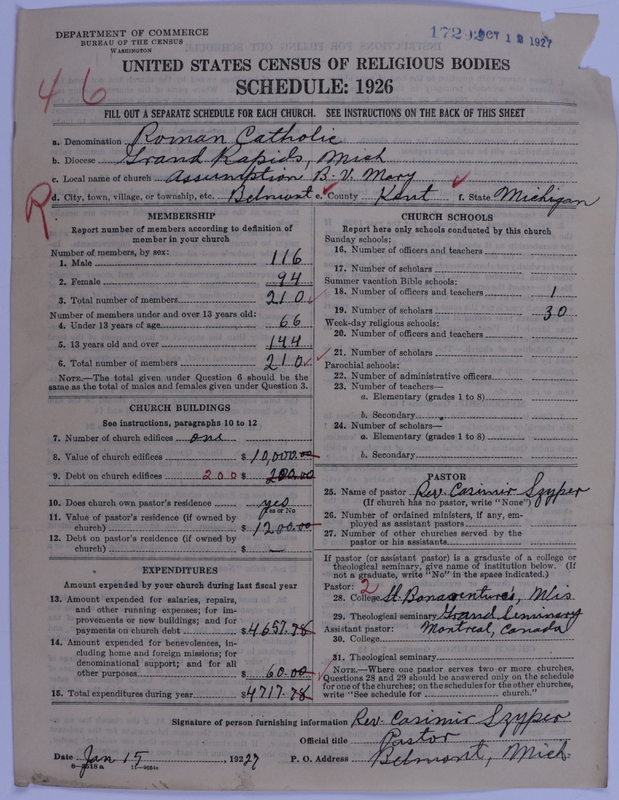 DEPARTMENT OF COMMERCE
BUREAU OF THE CENSUS
WASHINGTON
OCT 12 1927
UNITED STATES CENSUS OF RELIGIOUS BODIES
SCHEDULE: 1926
46
FILL OUT A SEPARATE SCHEDULE FOR EACH CHURCH. SEE INSTRUCTIONS ON THE BACK OF THIS SHEET
a. Denomination Roman Catholic
b. Diocese Grand Rapids, Mich
c. Local name of church Assumption B. V. Mary
R
d. City, town, village, or township, etc. Belmont e. County Kent f. State Michigan
MEMBERSHIP
Report number of members according to definition of
member in your church
Number of members, by sex:
1. Male 116
2. Female 94
3. Total number of members 210
Number of members under and over 13 years old:
4. Under 13 years of age 66
5. 13 years old and over 144
6. Total number of members 210
NOTE.—The total given under Question 6 should be the
same as the total of males and females given under Question 3.
CHURCH BUILDINGS
See instructions, paragraphs 10 to 12
7. Number of church edifices one
8. Value of church edifices $10,000.00
9. Debt on church edifices 200 $ 200.00
10. Does church own pastor's residence yes
Yes or No
11. Value of pastor's residence (if owned by
church) $1200.00
12. Debt on pastor's residence (if owned by
church) $ —
EXPENDITURES
Amount expended by your church during last fiscal year
13. Amount expended for salaries, repairs,
and other running expenses; for im-
provements or new buildings; and for
payments on church debt $4657.78
14. Amount expended for benevolences, in-
cluding home and foreign missions; for
denominational support; and for all
other purposes $ 60.00
15. Total expenditures during year $4717.78
CHURCH SCHOOLS
Report here only schools conducted by this church
Sunday schools:
16. Number of officers and teachers
17. Number of scholars
Summer vacation Bible schools:
18. Number of officers and teachers 1
19. Number of scholars 30
Week-day religious schools:
20. Number of officers and teachers
21. Number of scholars
Parochial schools:
22. Number of administrative officers
23. Number of teachers—
a. Elementary (grades 1 to 8)
b. Secondary
24. Number of scholars—
a. Elementary (grades 1 to 8)
b. Secondary
PASTOR
25. Name of pastor Rev. Casimir Szyper
(If church has no pastor, write "None")
26. Number of ordained ministers, if any, em-
ployed as assistant pastors
27. Number of other churches served by the
pastor or his assistants
If pastor (or assistant pastor) is a graduate of a college or
theological seminary, give name of institution below. (If
not a graduate, write "No" in the space indicated.)
Pastor: 2
28. College St Bonaventure's, Wis
29. Theological seminary Grand Seminary
Assistant pastor: Montreal, Canada
30. College
31. Theological seminary
NOTE.—Where one pastor serves two or more churches,
Questions 28 and 29 should be answered only on the schedule
for one of the churches; on the schedules for the other churches,
write "See schedule for church."
Signature of person furnishing information Rev. Casimir Szyper
Official title Pastor
Date Jan 15, 19227 P. O. Address Belmont, Mich.